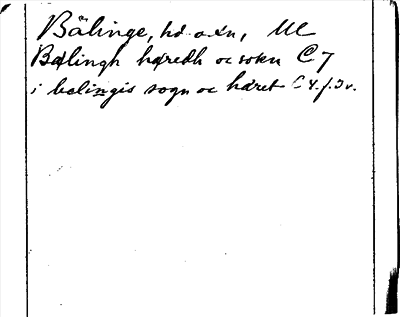 Bälinge, hd o. sn, Ul
Bælingh hæredh oc sokn C 7
i bælingis sogn oc hæret C 4. f. 3 v.